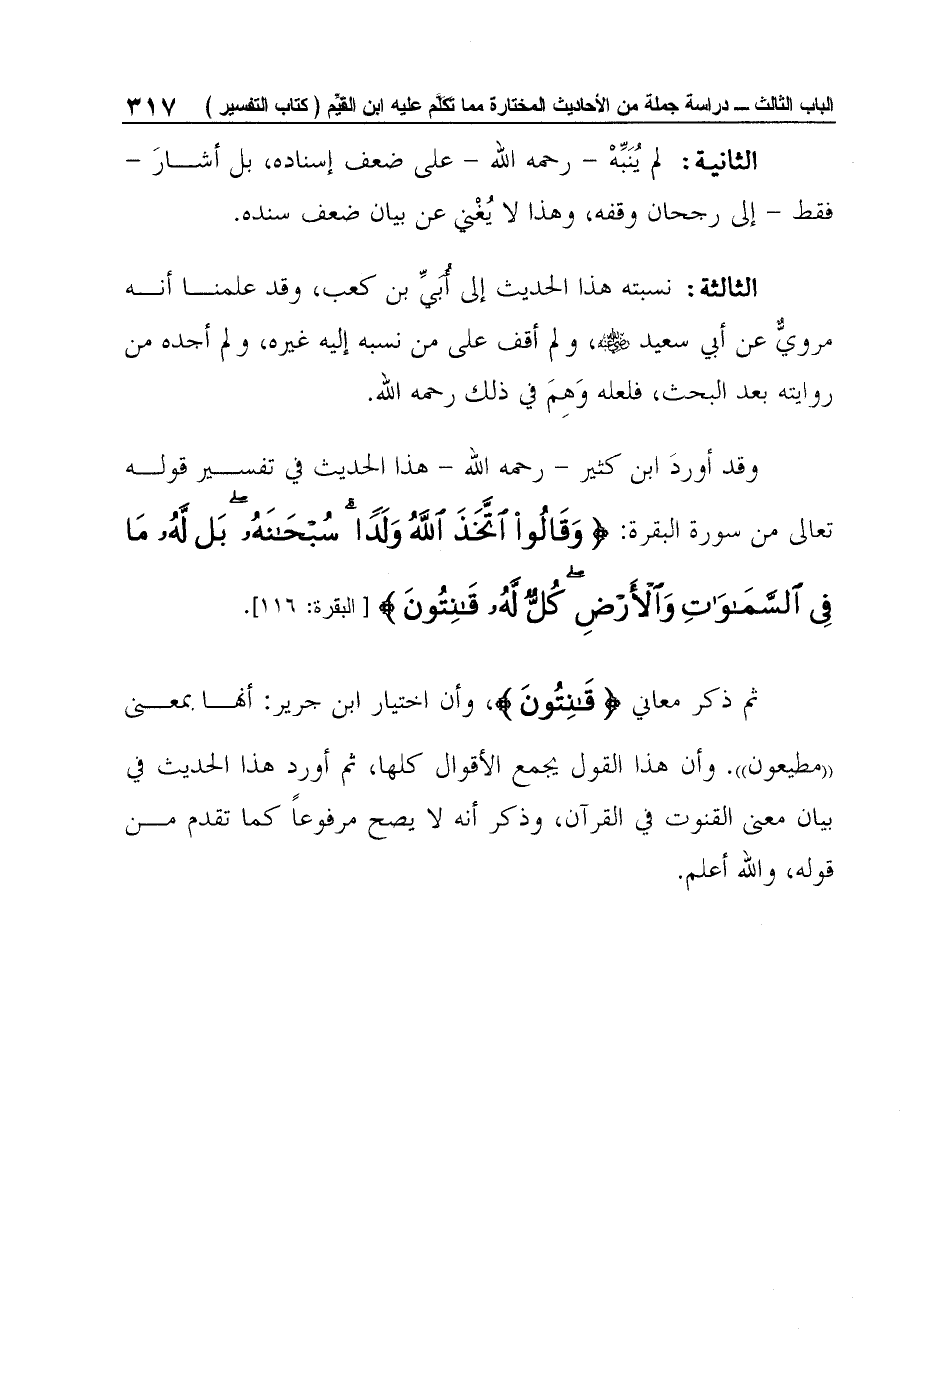 الباب الثالث ــ دراسة جملة من الأحاديث المختارة مما تكلَّم عليه ابن القيِّم ( كتاب التفسير ) ٣١٧
الثانية: لم يُنَبِّهْ - رحمه الله - على ضعف إسناده، بل أشـــارَ -
فقط - إلى رجحان وقفه، وهذا لا يُغْني عن بيان ضعف سنده.
الثالثة: نسبته هذا الحديث إلى أُبَيِّ بن كعب، وقد علمنـــا أنـــه
مرويٌّ عن أبي سعيد ﵁، ولم أقف على من نسبه إليه غيره، ولم أجده من
روايته بعد البحث، فلعله وَهِمَ في ذلك رحمه الله.
وقد أوردَ ابن كثير - رحمه الله - هذا الحديث في تفســـير قولـــه
تعالى من سورة البقرة: ﴿ وَقَالُوا۟ ٱتَّخَذَ ٱللَّهُ وَلَدًا ۗ سُبْحَـٰنَهُۥ ۖ بَل لَّهُۥ مَا
فِى ٱلسَّمَـٰوَٰتِ وَٱلْأَرْضِ ۖ كُلٌّ لَّهُۥ قَـٰنِتُونَ ﴾ [ البقرة: ١١٦].
ثم ذكر معاني ﴿ قَـٰنِتُونَ ﴾، وأن اختيار ابن جرير: أنهـــا بمعـــنى
((مطيعون)). وأن هذا القول يجمع الأقوال كلها، ثم أورد هذا الحديث في
بيان معنى القنوت في القرآن، وذكر أنه لا يصح مرفوعاً كما تقدم مـــن
قوله، والله أعلم.